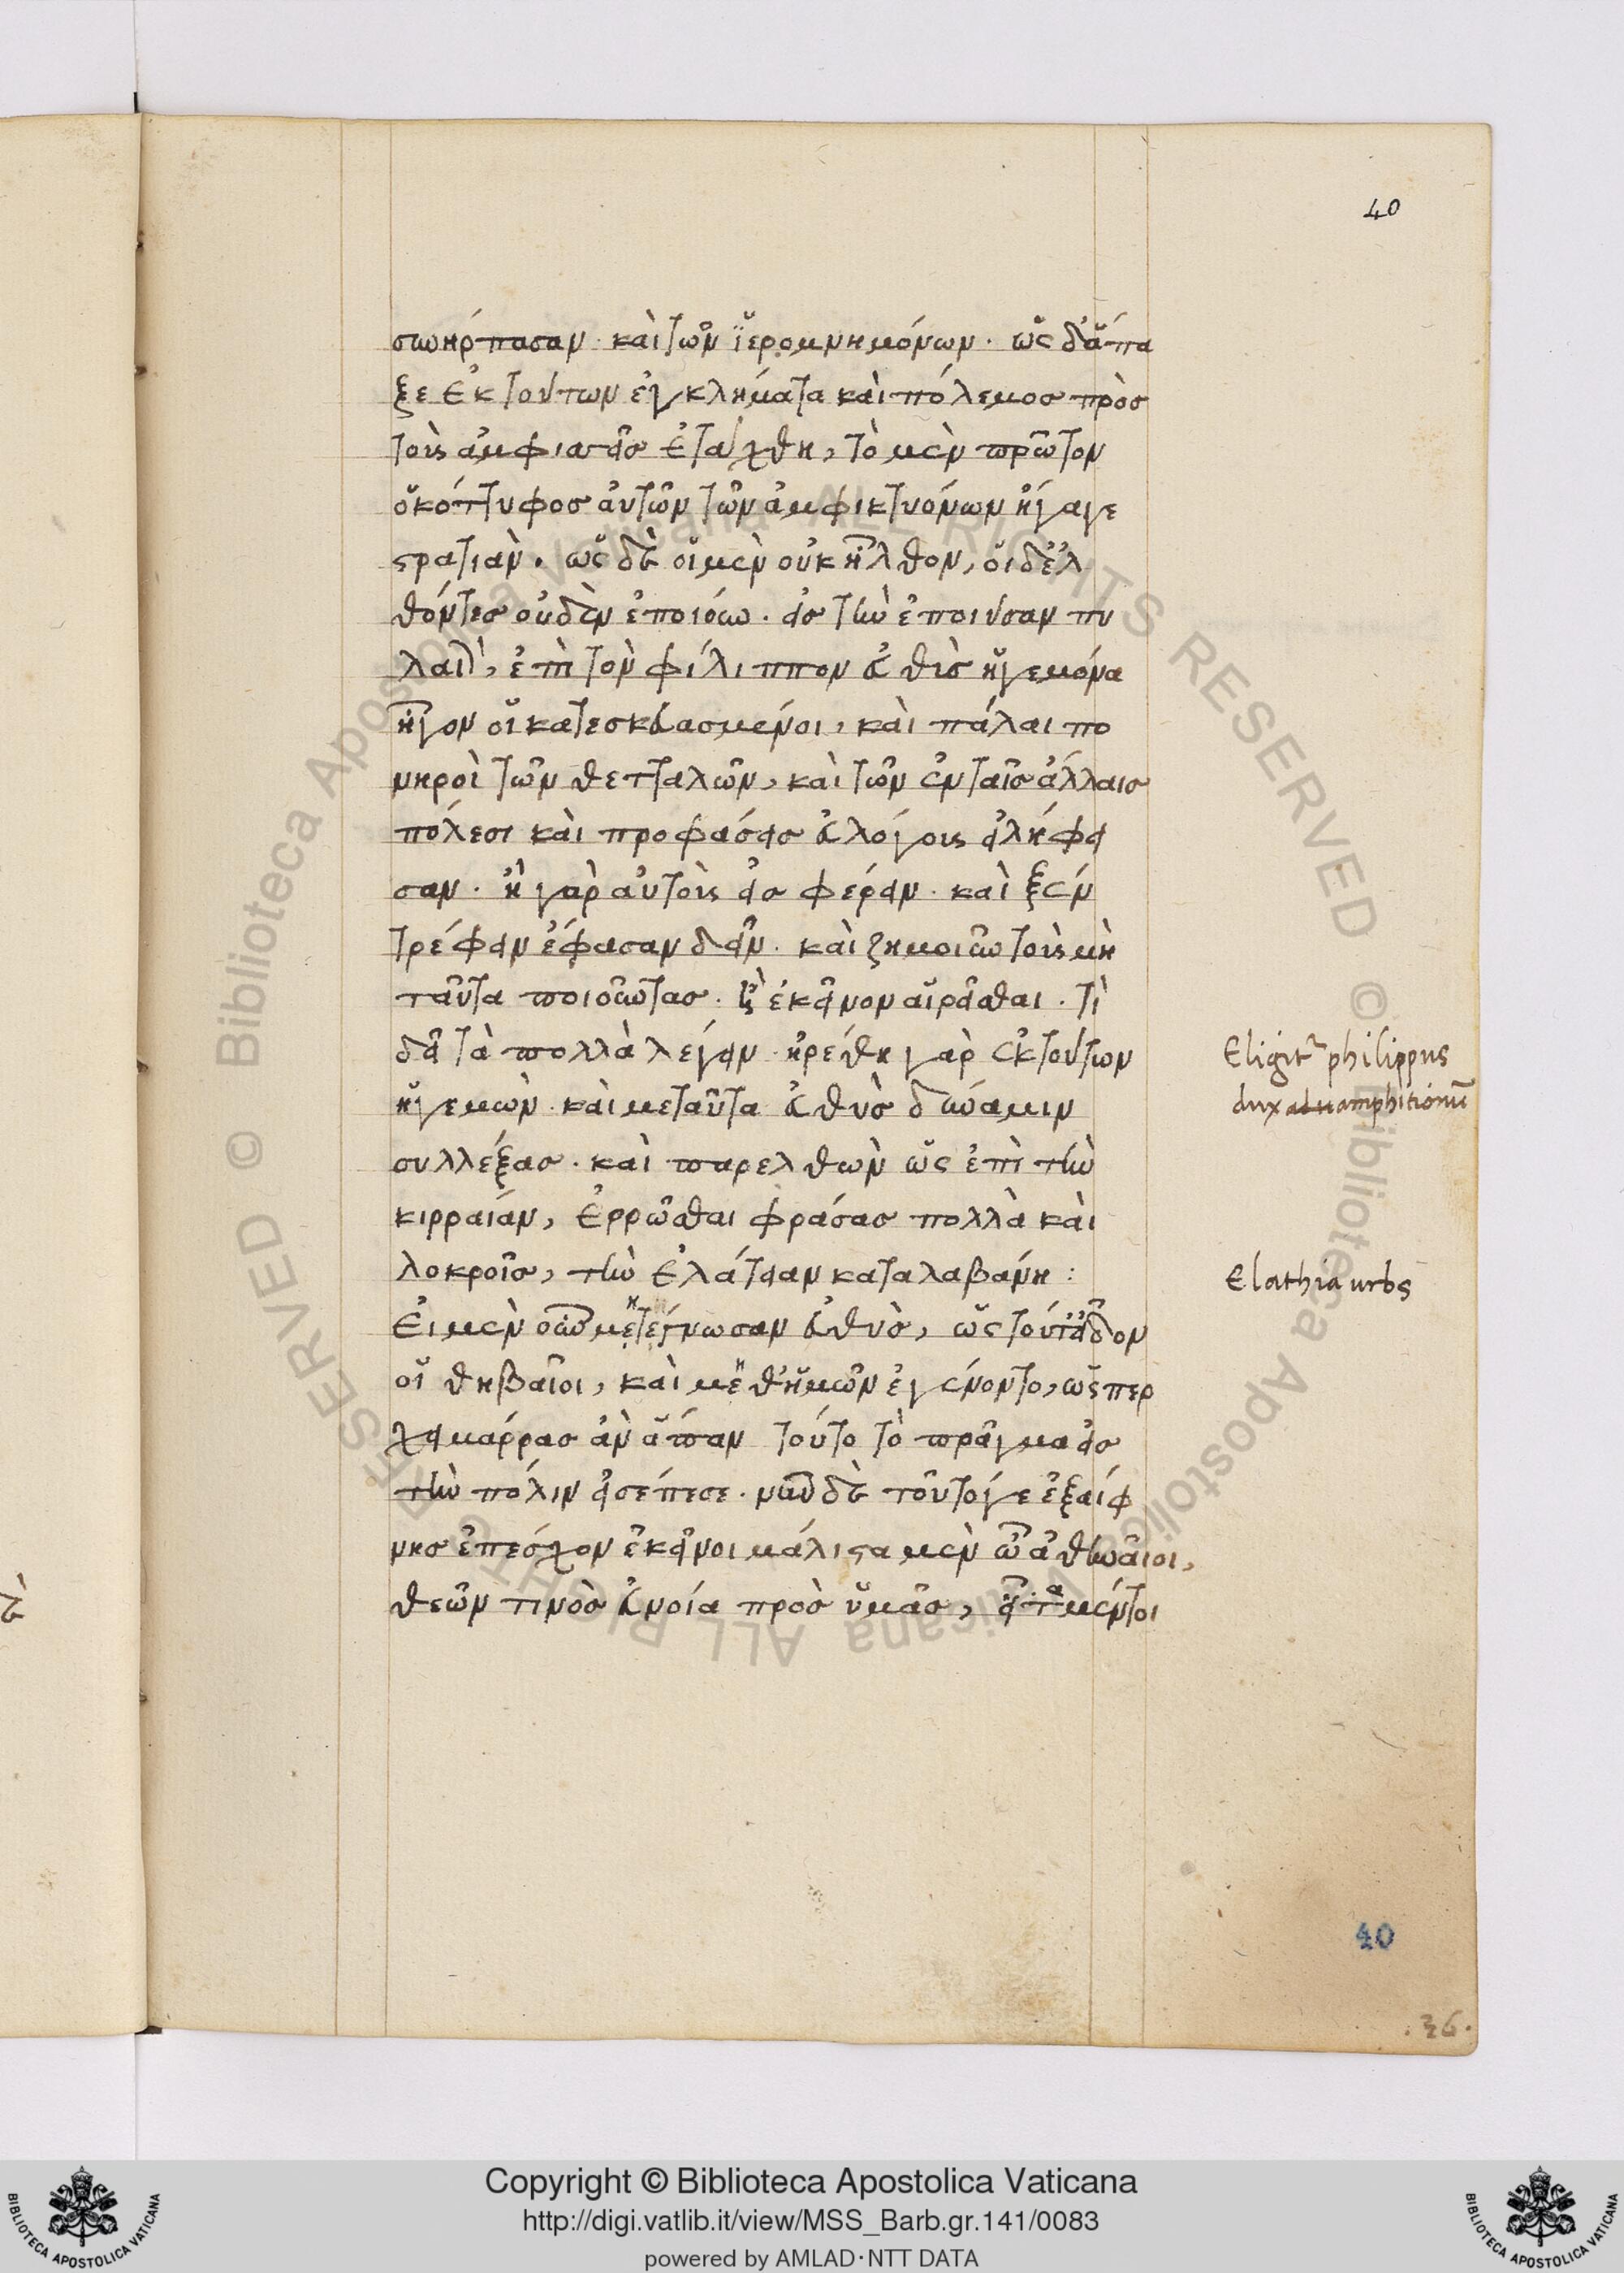 40
συνήρπασαν· καὶ τῶν ἱερομνημόνων· ὡς δ' ἅπα
ξ ἐκ τούτων ἐγκλήματα καὶ πόλεμος πρὸς
τοὺς ἀμφισσεῖς ἐταράχθη, τὸ μὲν πρῶτον
ὁ κόττυφος αὐτῶν τῶν ἀμφικτυόνων ἤγαγε
στρατιὰν· ὡς δὲ οἱ μὲν οὐκ ἦλθον, οἱ δ' ἐλ
θόντες οὐδὲν ἐποίουν· εἰς τὴν ἐπιοῦσαν πυ
λαίαν, ἐπὶ τὸν φίλιππον εὐθὺς ἡγεμόνα
ἦγον οἱ κατεσκευασμένοι, καὶ πάλαι πο
νηροὶ τῶν θετταλῶν, καὶ τῶν ἐν ταῖς ἄλλαις
πόλεσι καὶ προφάσεις εὐλόγους εἰλήφει
σαν· ἢ γὰρ αὐτοὺς εἰσφέρειν· καὶ ξέν
τρέφειν ἔφασαν δεῖν· καὶ ζημιοῦν τοὺς μὴ
ταῦτα ποιοῦντας· ἢ ἐκεῖνον αἱρεῖσθαι· τί
δεῖ τὰ πολλὰ λέγειν· ἡρέθη γὰρ ἐκ τούτων
ἡγεμὼν· καὶ μετὰ ταῦτα εὐθὺς δύναμιν
συλλέξας· καὶ παρελθὼν ὡς ἐπὶ τὴν
κιρραίαν, ἐρρῶσθαι φράσας πολλὰ καὶ
λοκροῖς, τὴν ἐλάτειαν καταλαμβάνει:
Εἰ μὲν οὖν μετέγνωσαν εὐθὺς, ὡς τοῦτ' εἶδον
οἱ θηβαῖοι, καὶ μεθ' ἡμῶν ἐγένοντο, ὥσπερ
χειμάρρας ἂν ἅπαν τοῦτο τὸ πρᾶγμα εἰς
τὴν πόλιν εἰσέπεσε· νῦν δὲ τοῦτό γε ἐξαίφ
νης ἐπέσχον ἐκεῖνοι μάλιστα μὲν ὦ ἀθηναῖοι,
θεῶν τινὸς εὐνοίᾳ πρὸς ὑμᾶς, εἶτα μέντοι
Eligitr philippus
dux amphitionum
Elathia urbs
40
.36.
Copyright © Biblioteca Apostolica Vaticana
http://digi.vatlib.it/view/MSS_Barb.gr.141/0083
powered by AMLAD·NTT DATA